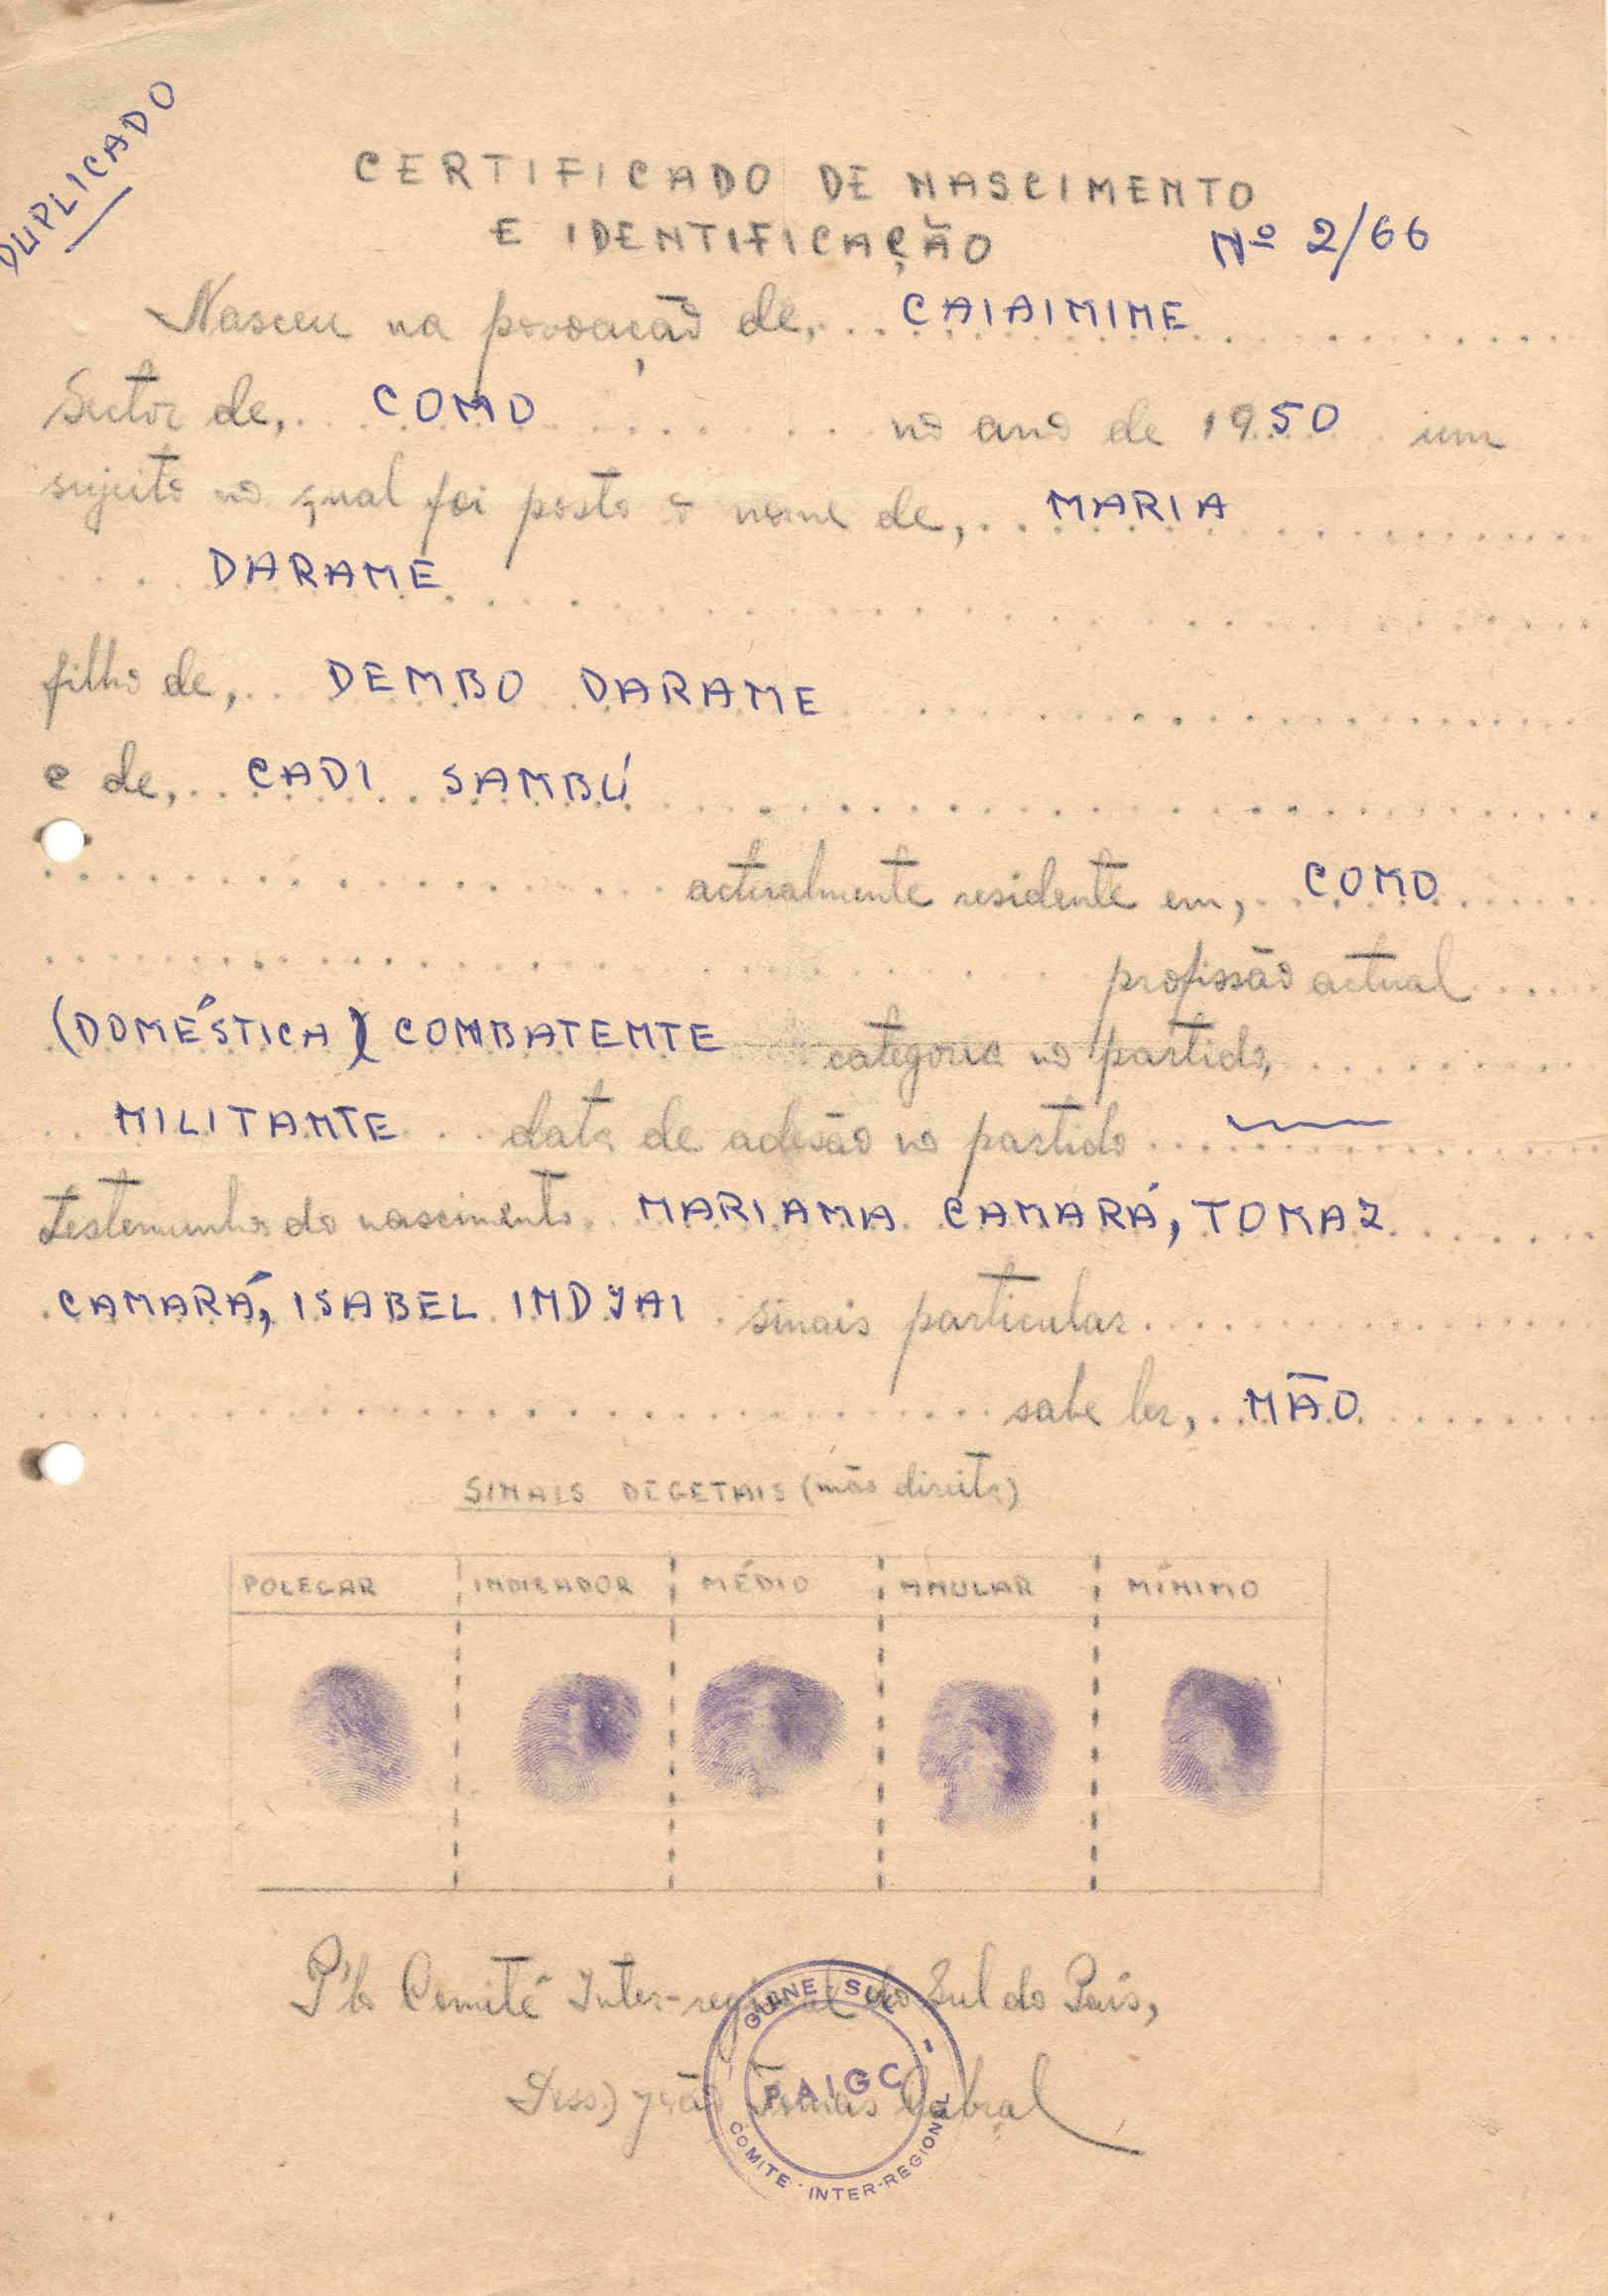 DUPLICADO
CERTIFICADO DE NASCIMENTO
E IDENTIFICAÇÃO Nº 2/66
Nasceu na povoação de, CAIAIMINE
Sector de, COMO no ano de 1950 um
sujeito no qual foi posto o nome de, MARIA
DARAME
filho de, DEMBO DARAME
e de, CADI SAMBÚ
actualmente residente em, COMO
profissão actual
(DOMÉSTICA) COMBATENTE categoria no partido,
MILITANTE data de adesão no partido
testemunha do nascimento, MARIAMA CAMARÁ, TOMAZ
CAMARÁ, ISABEL INDJAI sinais particular
sabe ler, NÃO
SINAIS DEGETAIS (mão direita)
POLEGAR INDICADOR MÉDIO ANULAR MÍNIMO
P'lo Comité Inter-regional do Sul do País,
João Tomás Cabral
GUINE SUL
PAIGC
COMITE INTER-REGIONAL